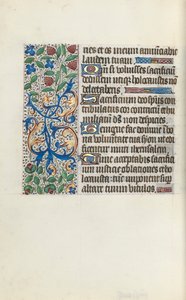 nes et os meum annunciabit
laudem tuam.
Qm̄ si voluisses sacrificiū
dedissem utiqz holocaustis nō
delectaberis.
Sacrificium deo sp̄us con
tribulatus cor contritū et hu
miliatū d̄s non despicies.
Benigne fac domine i bo
na voluntate tua syon ut edi
ficentur muri iherusalem.
Tunc acceptabis sacrifici
um iusticie oblationes et ho
locausta: tūc imponent sup
altare tuum vitulos.